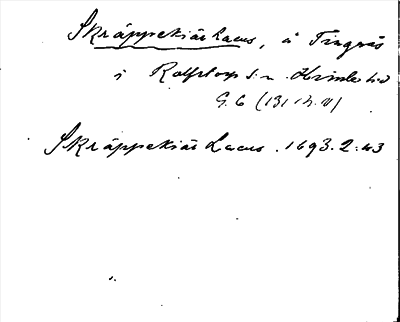 SkräppekiärLacus, å Tingnäs
i Rolfstorps s:n Himle hd
G. C (131 h. v)
Skräppekiär Lacus. 1693.2:43